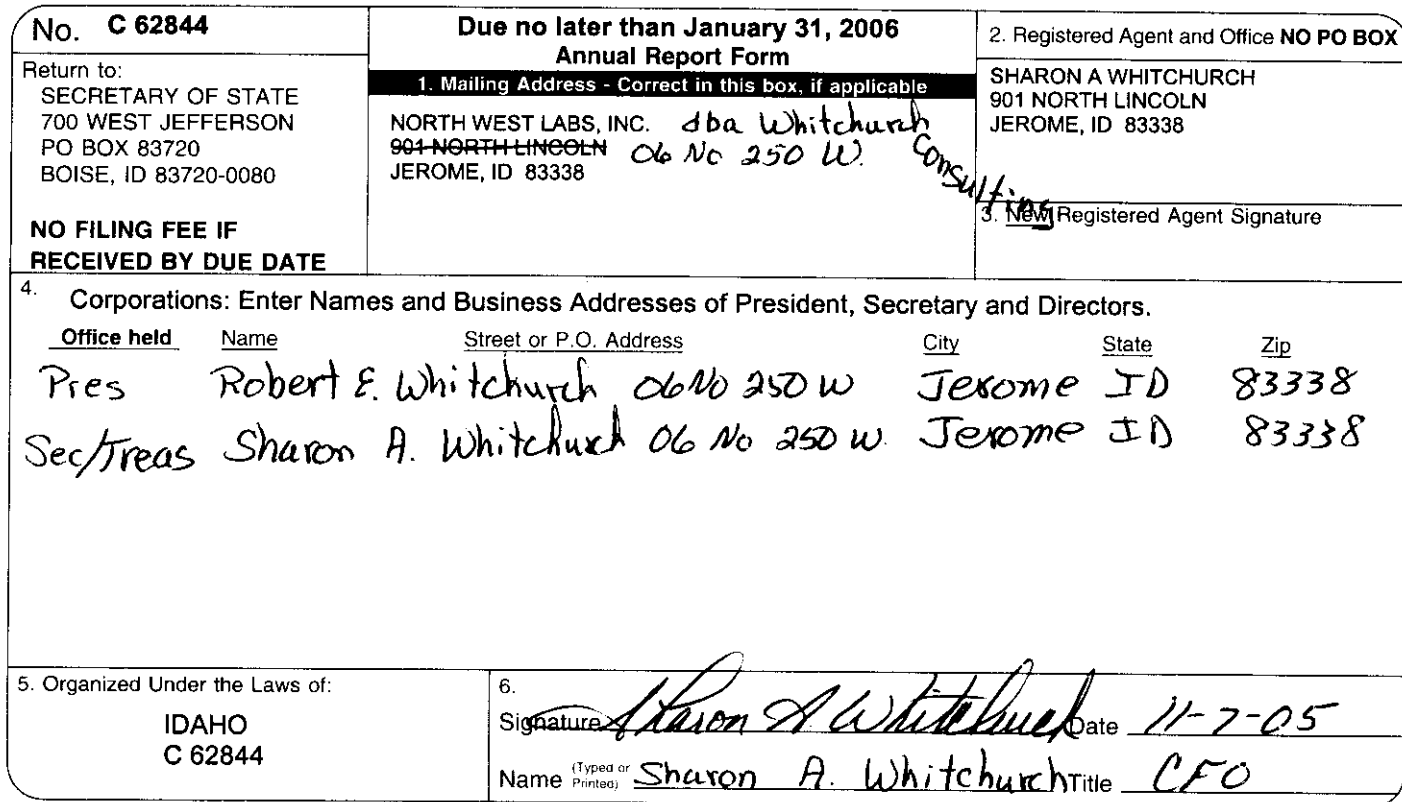 No. C 62844
Return to:
SECRETARY OF STATE
700 WEST JEFFERSON
PO BOX 83720
BOISE, ID 83720-0080
NO FILING FEE IF
RECEIVED BY DUE DATE
Due no later than January 31, 2006
Annual Report Form
1. Mailing Address - Correct in this box, if applicable
NORTH WEST LABS, INC. dba Whitchurch Consulting
901 NORTH LINCOLN 06 No 250 W.
JEROME, ID 83338
2. Registered Agent and Office NO PO BOX
SHARON A WHITCHURCH
901 NORTH LINCOLN
JEROME, ID 83338
3. New Registered Agent Signature
4. Corporations: Enter Names and Business Addresses of President, Secretary and Directors.
Office held Name Street or P.O. Address City State Zip
Pres Robert E. Whitchurch 06 No 250 W Jerome ID 83338
Sec/Treas Sharon A. Whitchurch 06 No 250 W. Jerome ID 83338
5. Organized Under the Laws of:
IDAHO
C 62844
6.
Signature Sharon A Whitchurch Date 11-7-05
Name (Typed or Printed) Sharon A. Whitchurch Title CFO